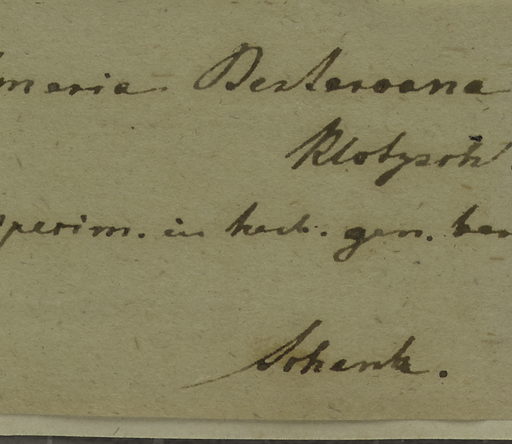 maria Berteroana
Klotzsch
specim. in herb. gen. ber
Schenk.